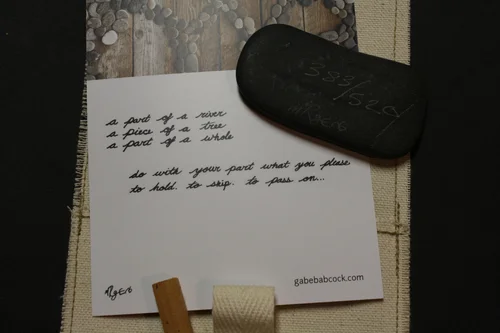 583/520
a part of a river
a piece of a tree
a part of a whole
do with your part what you please
to hold. to skip. to pass on...
gabebabcock.com